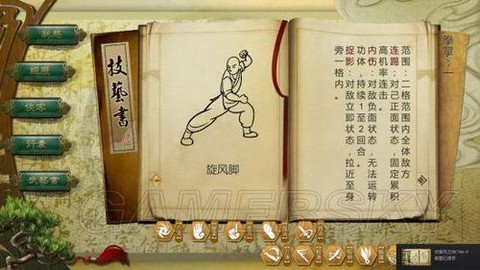 技藝書
旋风脚
范围：二格范围内全体敌方
连踢：对己正面状态，固定累积
高机率连击。
内伤：对敌负面状态，无法运转
功体，持续1至2回合。
捉影：对敌立即状态，拉近至身
旁一格内。
GAMERSKY